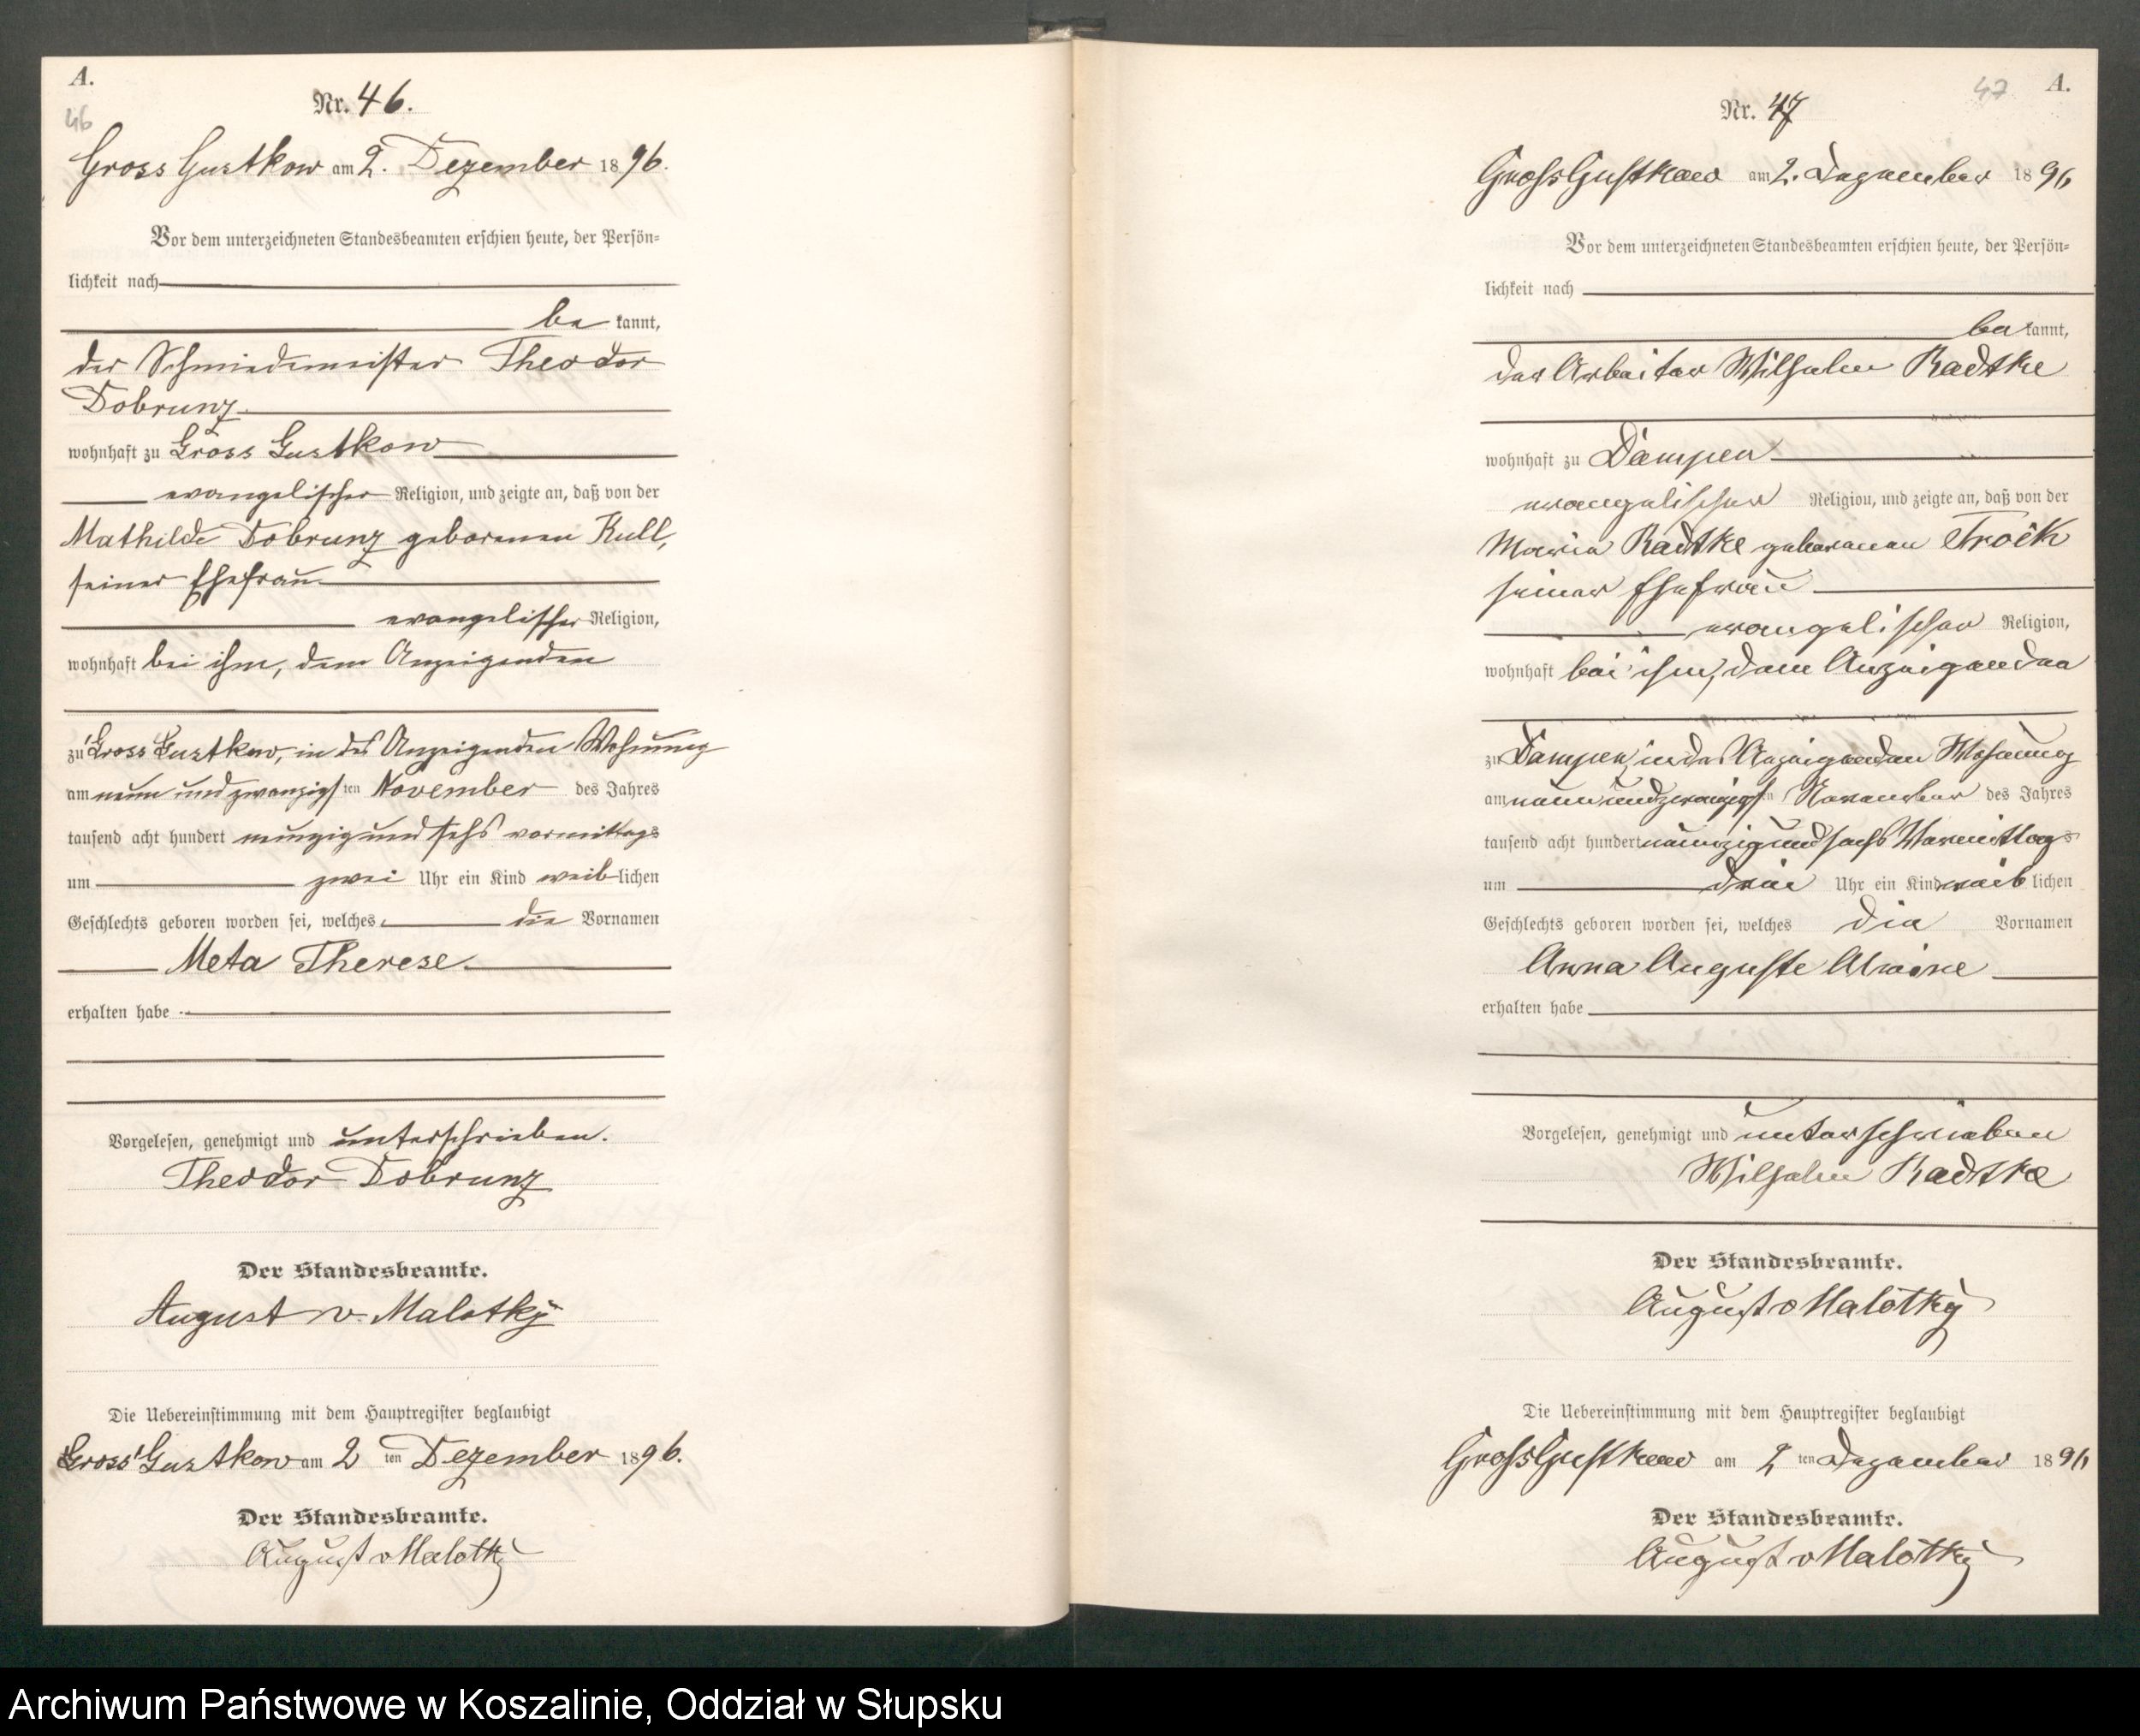 A.
46
Nr. 46.
Gross Gustkow am 2. Dezember 1896.
Vor dem unterzeichneten Standesbeamten erschien heute, der Persön=
lichkeit nach
be kannt,
der Schmiedemeister Theodor
Dobrunz
wohnhaft zu Gross Gustkow
evangelischer Religion, und zeigte an, daß von der
Mathilde Dobrunz geborenen Kull,
seiner Ehefrau
evangelischer Religion,
wohnhaft bei ihm, dem Anzeigenden
zu Gross Gustkow, in des Anzeigenden Wohnung
am neun und zwanzigsten November des Jahres
tausend acht hundert neunzig und sechs vormittags
um zwei Uhr ein Kind weiblichen
Geschlechts geboren worden sei, welches die Vornamen
Meta Therese.
erhalten habe
Vorgelesen, genehmigt und unterschrieben.
Theodor Dobrunz
Der Standesbeamte.
August v. Malotky
Die Uebereinstimmung mit dem Hauptregister beglaubigt
Gross Gustkow am 2 ten Dezember 1896.
Der Standesbeamte.
August v Malotky
47 A.
Nr. 47
Groß Gustkow am 2. Dezember 1896
Vor dem unterzeichneten Standesbeamten erschien heute, der Persön=
lichkeit nach
be kannt,
der Arbeiter Wilhelm Radtke
wohnhaft zu Dampen
evangelischer Religion, und zeigte an, daß von der
Maria Radtke geborenen
seiner Ehefrau
evangelischer Religion,
wohnhaft bei ihm, dem Anzeigenden
zu Dampen, in des Anzeigenden Wohnung
am neun und zwanzigsten November des Jahres
tausend acht hundert neunzig und sechs Vormittags
um drei Uhr ein Kind weiblichen
Geschlechts geboren worden sei, welches die Vornamen
Anna Auguste Alwine
erhalten habe
Vorgelesen, genehmigt und unterschrieben
Wilhelm Radtke
Der Standesbeamte.
August v Malotky
Die Uebereinstimmung mit dem Hauptregister beglaubigt
Groß Gustkow am 2 ten Dezember 1896
Der Standesbeamte.
August v Malotky
Archiwum Państwowe w Koszalinie, Oddział w Słupsku